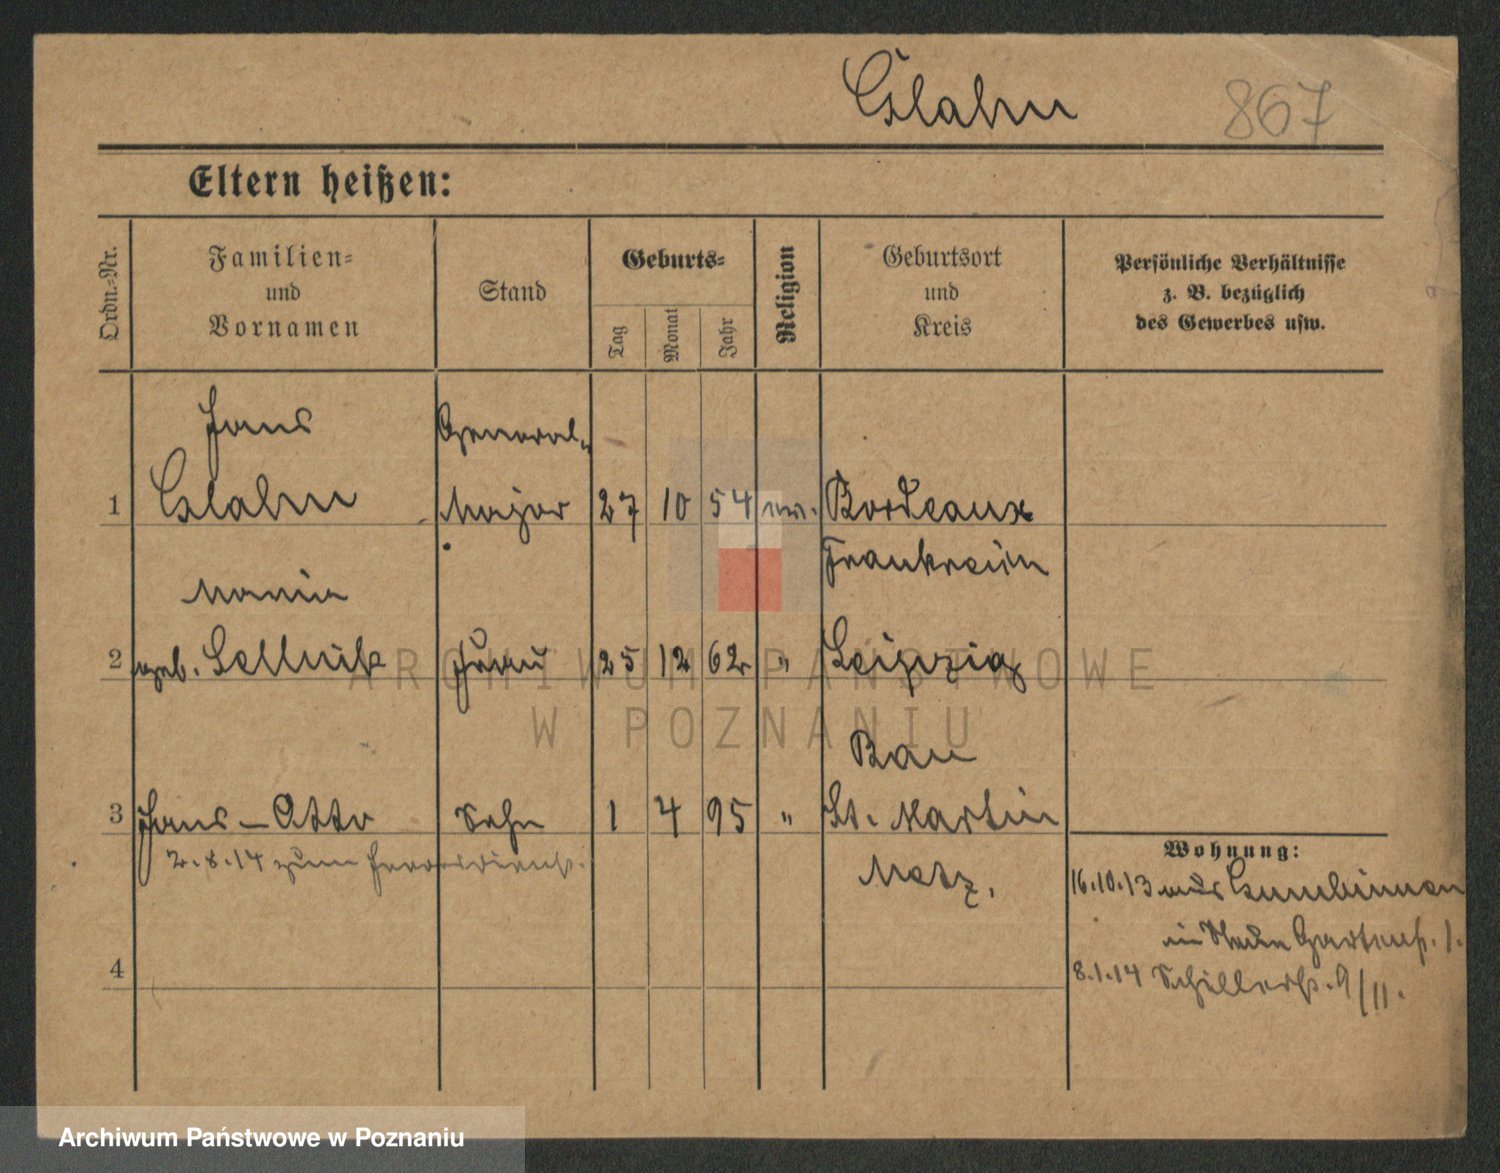 Glahn 867
Eltern heißen:
Ordn.-Nr.
Familien-
und
Vornamen
Stand
Geburts-
Tag
Monat
Jahr
Religion
Geburtsort
und
Kreis
Persönliche Verhältnisse
z. B. bezüglich
des Gewerbes usw.
Hans General-
1 Glahn Major 27 10 54 ev. Bordeaux
Frankreich
Maria
2 geb. Sellnick Frau 25 12 62 " Leipzig
Ban
3 Hans-Otto Sohn 1 4 95 " St. Martin
2.8.14 zum Heeresdienst. Metz.
4
Wohnung:
16.10.13 aus Gumbinnen
Gartenstr. 1.
8.1.14 Schillerstr. 9/II.
ARCHIWUM PAŃSTWOWE
W POZNANIU
Archiwum Państwowe w Poznaniu